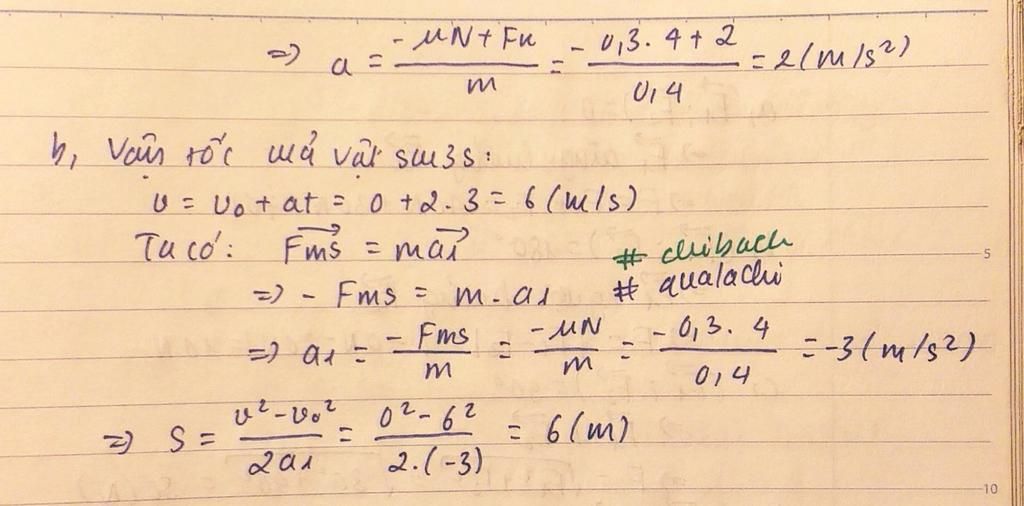 => a = \frac{-μN + Fk}{m} = \frac{-0,3.4+2}{0,4} = 2(m/s²)
b, Vận tốc mà vật sau 3s:
v = v₀ + at = 0 + 2.3 = 6 (m/s)
Ta có: \vec{Fms} = m\vec{a₁} # chibach
=> - Fms = m.a₁ # qualachi
=> a₁ = \frac{-Fms}{m} = \frac{-μN}{m} = \frac{-0,3.4}{0,4} = -3(m/s²)
=> S = \frac{v²-v₀²}{2a₁} = \frac{0²-6²}{2.(-3)} = 6(m)
5
10